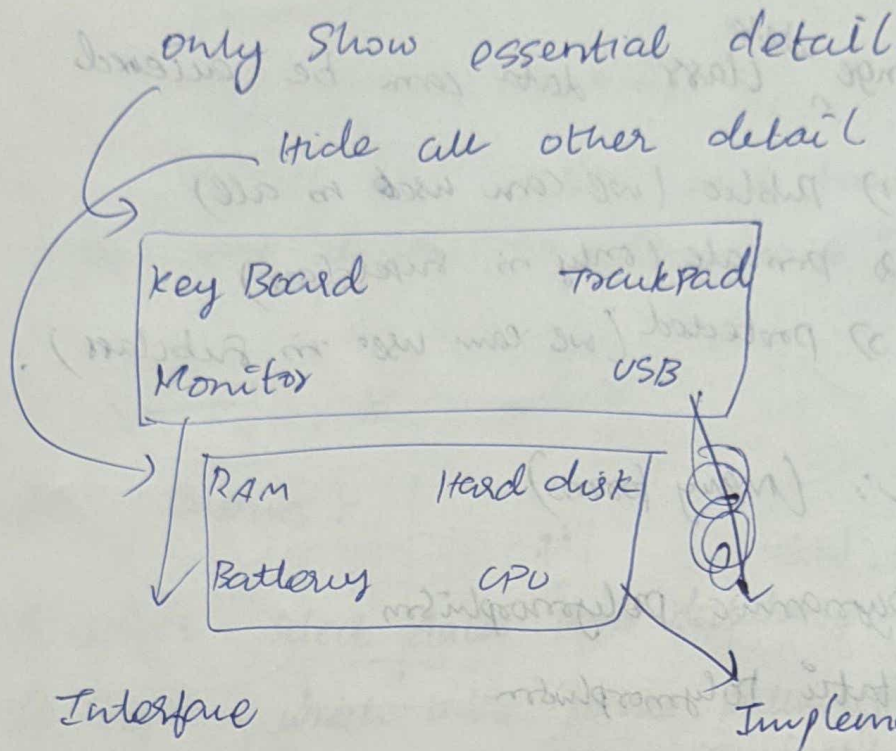 only Show essential detail
Hide all other detail
Key Board Trackpad
Monitor USB
RAM Hard disk
Battery CPU
Interface Implem